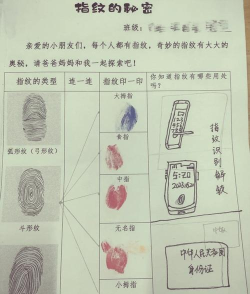 指纹的秘密
班级:
亲爱的小朋友们，每个人都有指纹，奇妙的指纹有大大的
奥秘，请爸爸妈妈和我一起探索吧！
指纹的类型
连一连
指纹印一印
你知道指纹有哪些用处吗？
大拇指
食指
弧形纹（弓形纹）
中指
指纹识别解锁
5:20
无名指
斗形纹
中华人民共和国
身份证
小拇指